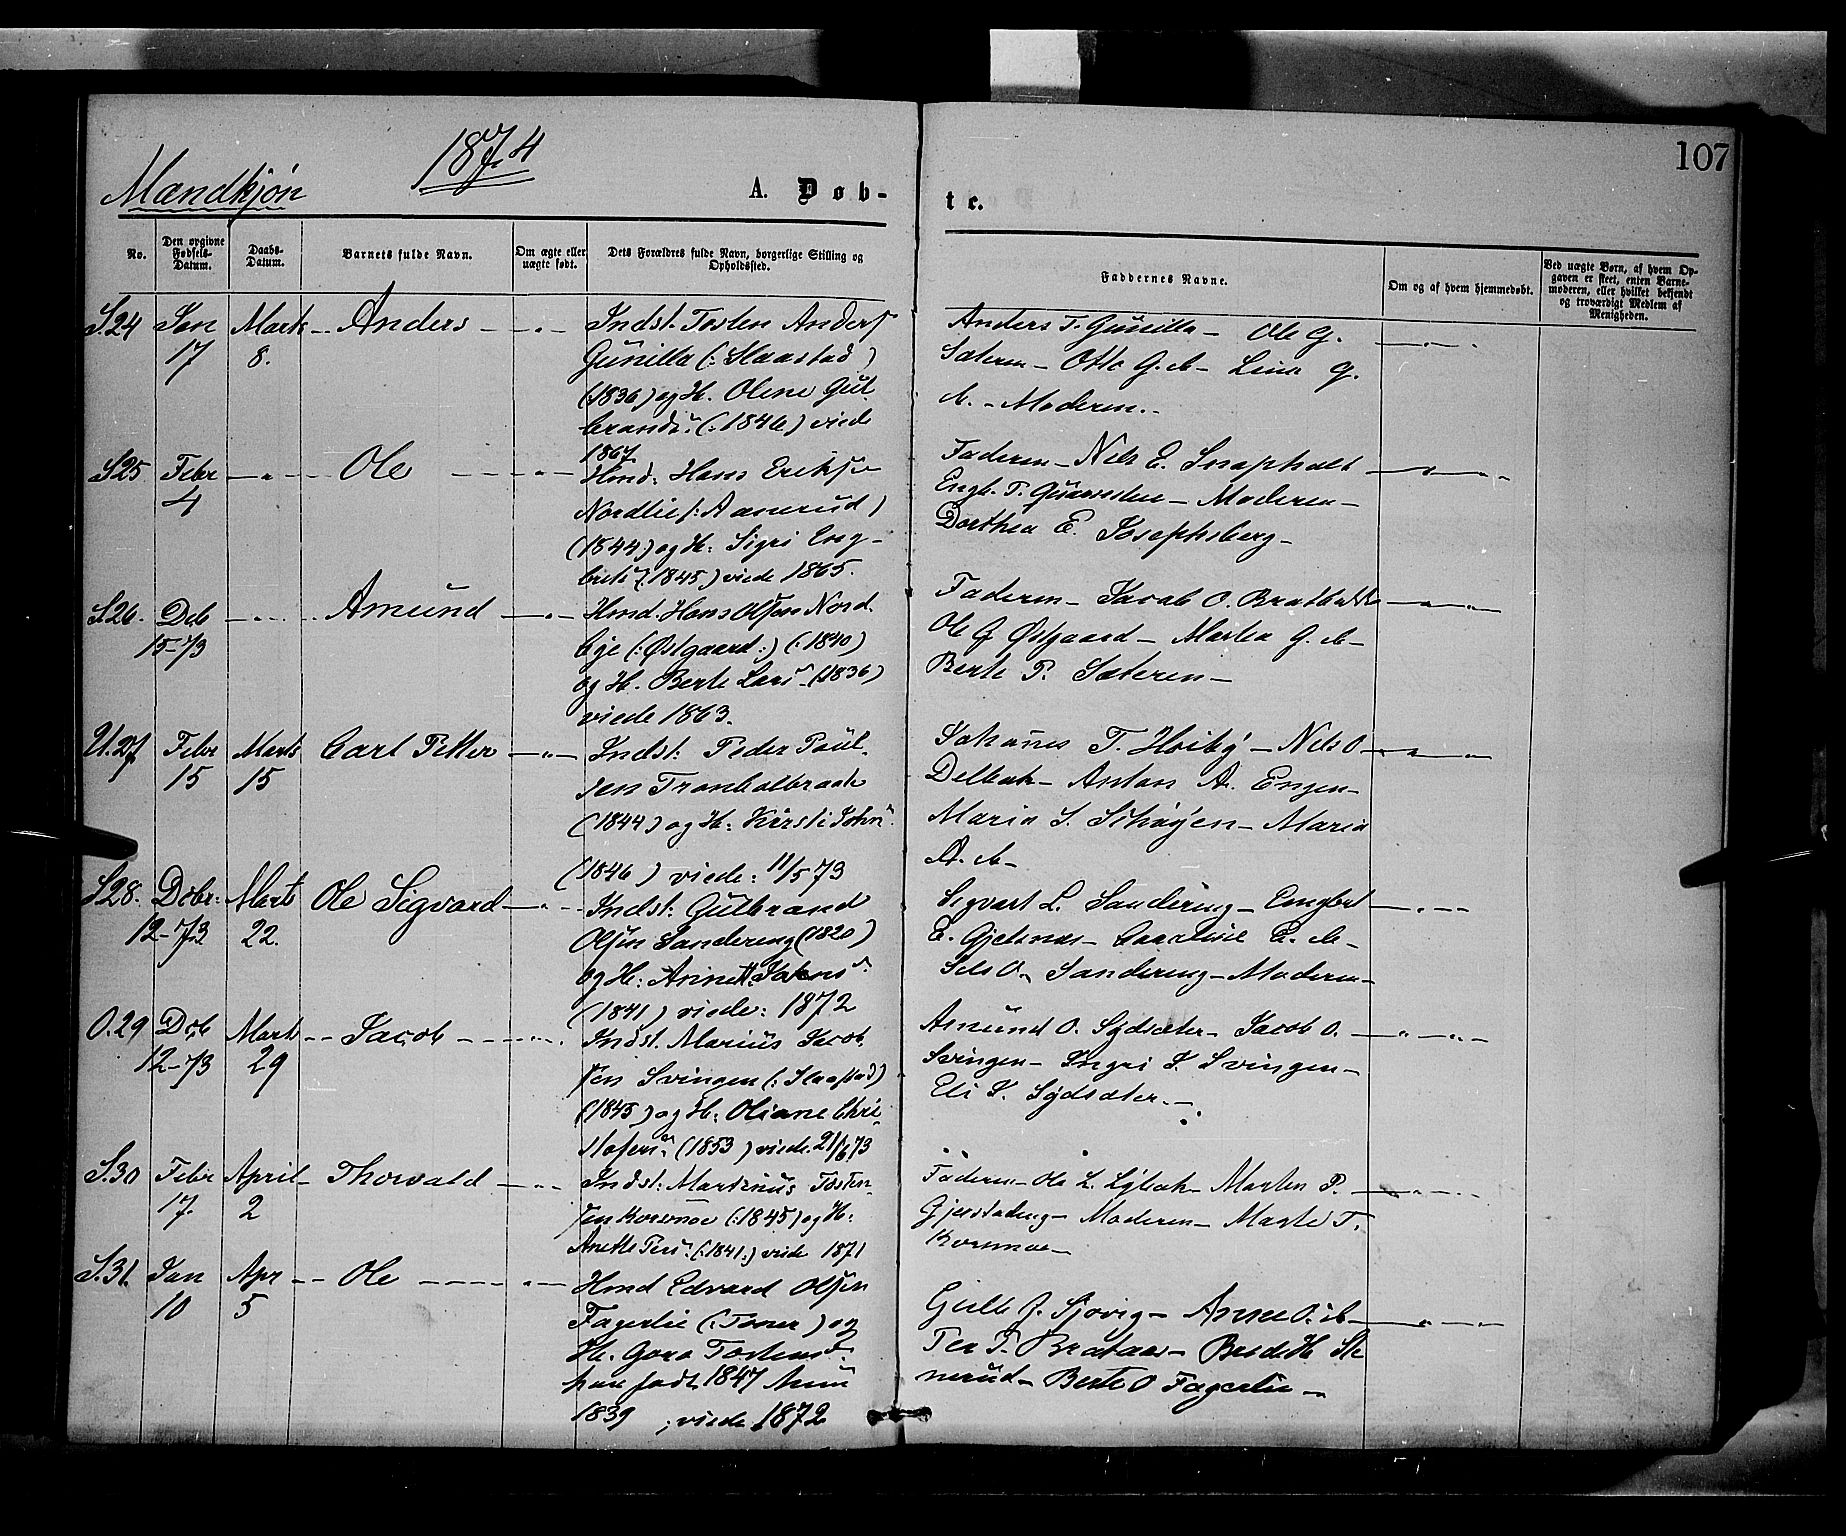 107
1874
Mandkjøn
A. Døb-
te.
No.
Den opgivne Fødsels-Datum.
Daabs-Datum.
Barnets fulde Navn.
Om ægte eller uægte født.
Dets Forældres fulde Navn, borgerlige Stilling og Opholdssted.
Faddernes Navne.
Om og af hvem hjemmedøbt.
Ved uægte Børn, af hvem Opgaven er skeet, enten Barnemoderen, eller hvilket bekjendt og troværdigt Medlem af Menigheden.
S.24 Jan 17 Marts 8. Anders
Indst. Tosten Anders
Gunilla (: Haastad)
(1836) og H. Olene Gul
brands. (: 1846) viede
1867
Anders T. Gunilla – Ole G.
Sæteren – Otto G. ib – Lina G.
ib. – Moderen. –
S25 Febr 4 Ole
Hmd: Hans Eriksen
Nordlie (: Aanerud)
(1844) og H: Sigri Eng-
brets (1845.) viede 1865.
Faderen – Nils E.
Engb. T. – Moderen –
Dorthea E. Josephsberg –
S26. Deb 15-73 Amund
Hmd. Hans Olsen Nord
bye (: Østgaard :) (: 1840)
og H. Berte Lars (1836)
viede 1863.
Faderen – Jacob O. Bratbakke
Ole G Østgaard – Marten G. ib –
Berte P. Sæteren –
U.27 Febr 15 Marts 15 Carl Petter
Indst: Peder Poul
sen Tronbolbraate
(1844) og H: Kirsti John
(1846) viede: 11/5 73
Johannes T. Høiby – Nils O
Delbak – Anton A. Engen –
Maria S. Schøyen – Maria
A. ib –
S28. Debr: 12-73 Marts 22. Ole Sigvard
Indst: Gulbrand
Olsen Sandering (1820)
og H: Annett Johns
(1841) viede: 1872
Sigvart L. Sandering – Engbret
E. Gjelsnæs – Caroline E. ib –
O. Sandering – Moderen –
O.29 Deb 12-73 Marts 29 Jacob
Indst. Marius Jacob
sen Svingen (: Haastad)
(1845) og H: Oliane Chri
stofers (1853) viede 21/6 73
Amund O. Sydsæter – Jacob O.
Svingen – Ingri J. Svingen –
Eli J. Sydsæter. –
S.30 Febr 17. April 2 Thorvald
Indst: Martinus Tosten
sen Korsmoe (: 1845) og H:
Anette Pers. (: 1841 :) viede 1871
Faderen – Ole L. Lybak – Marten P.
– Moderen – Marte T.
Korsmoe –
S.31 Jan 10 Apr 5 Ole
Hmd Edvard Olsen
Fagerlie (: Toner) og
H. Goro Tostensd.
han født 1847 hun
1839 ; viede 1872
Gulb J. Sjøvig – Anne O. ib –
Per P. Brataas – Brede H Ste
nerud – Berte O Fagerlie –